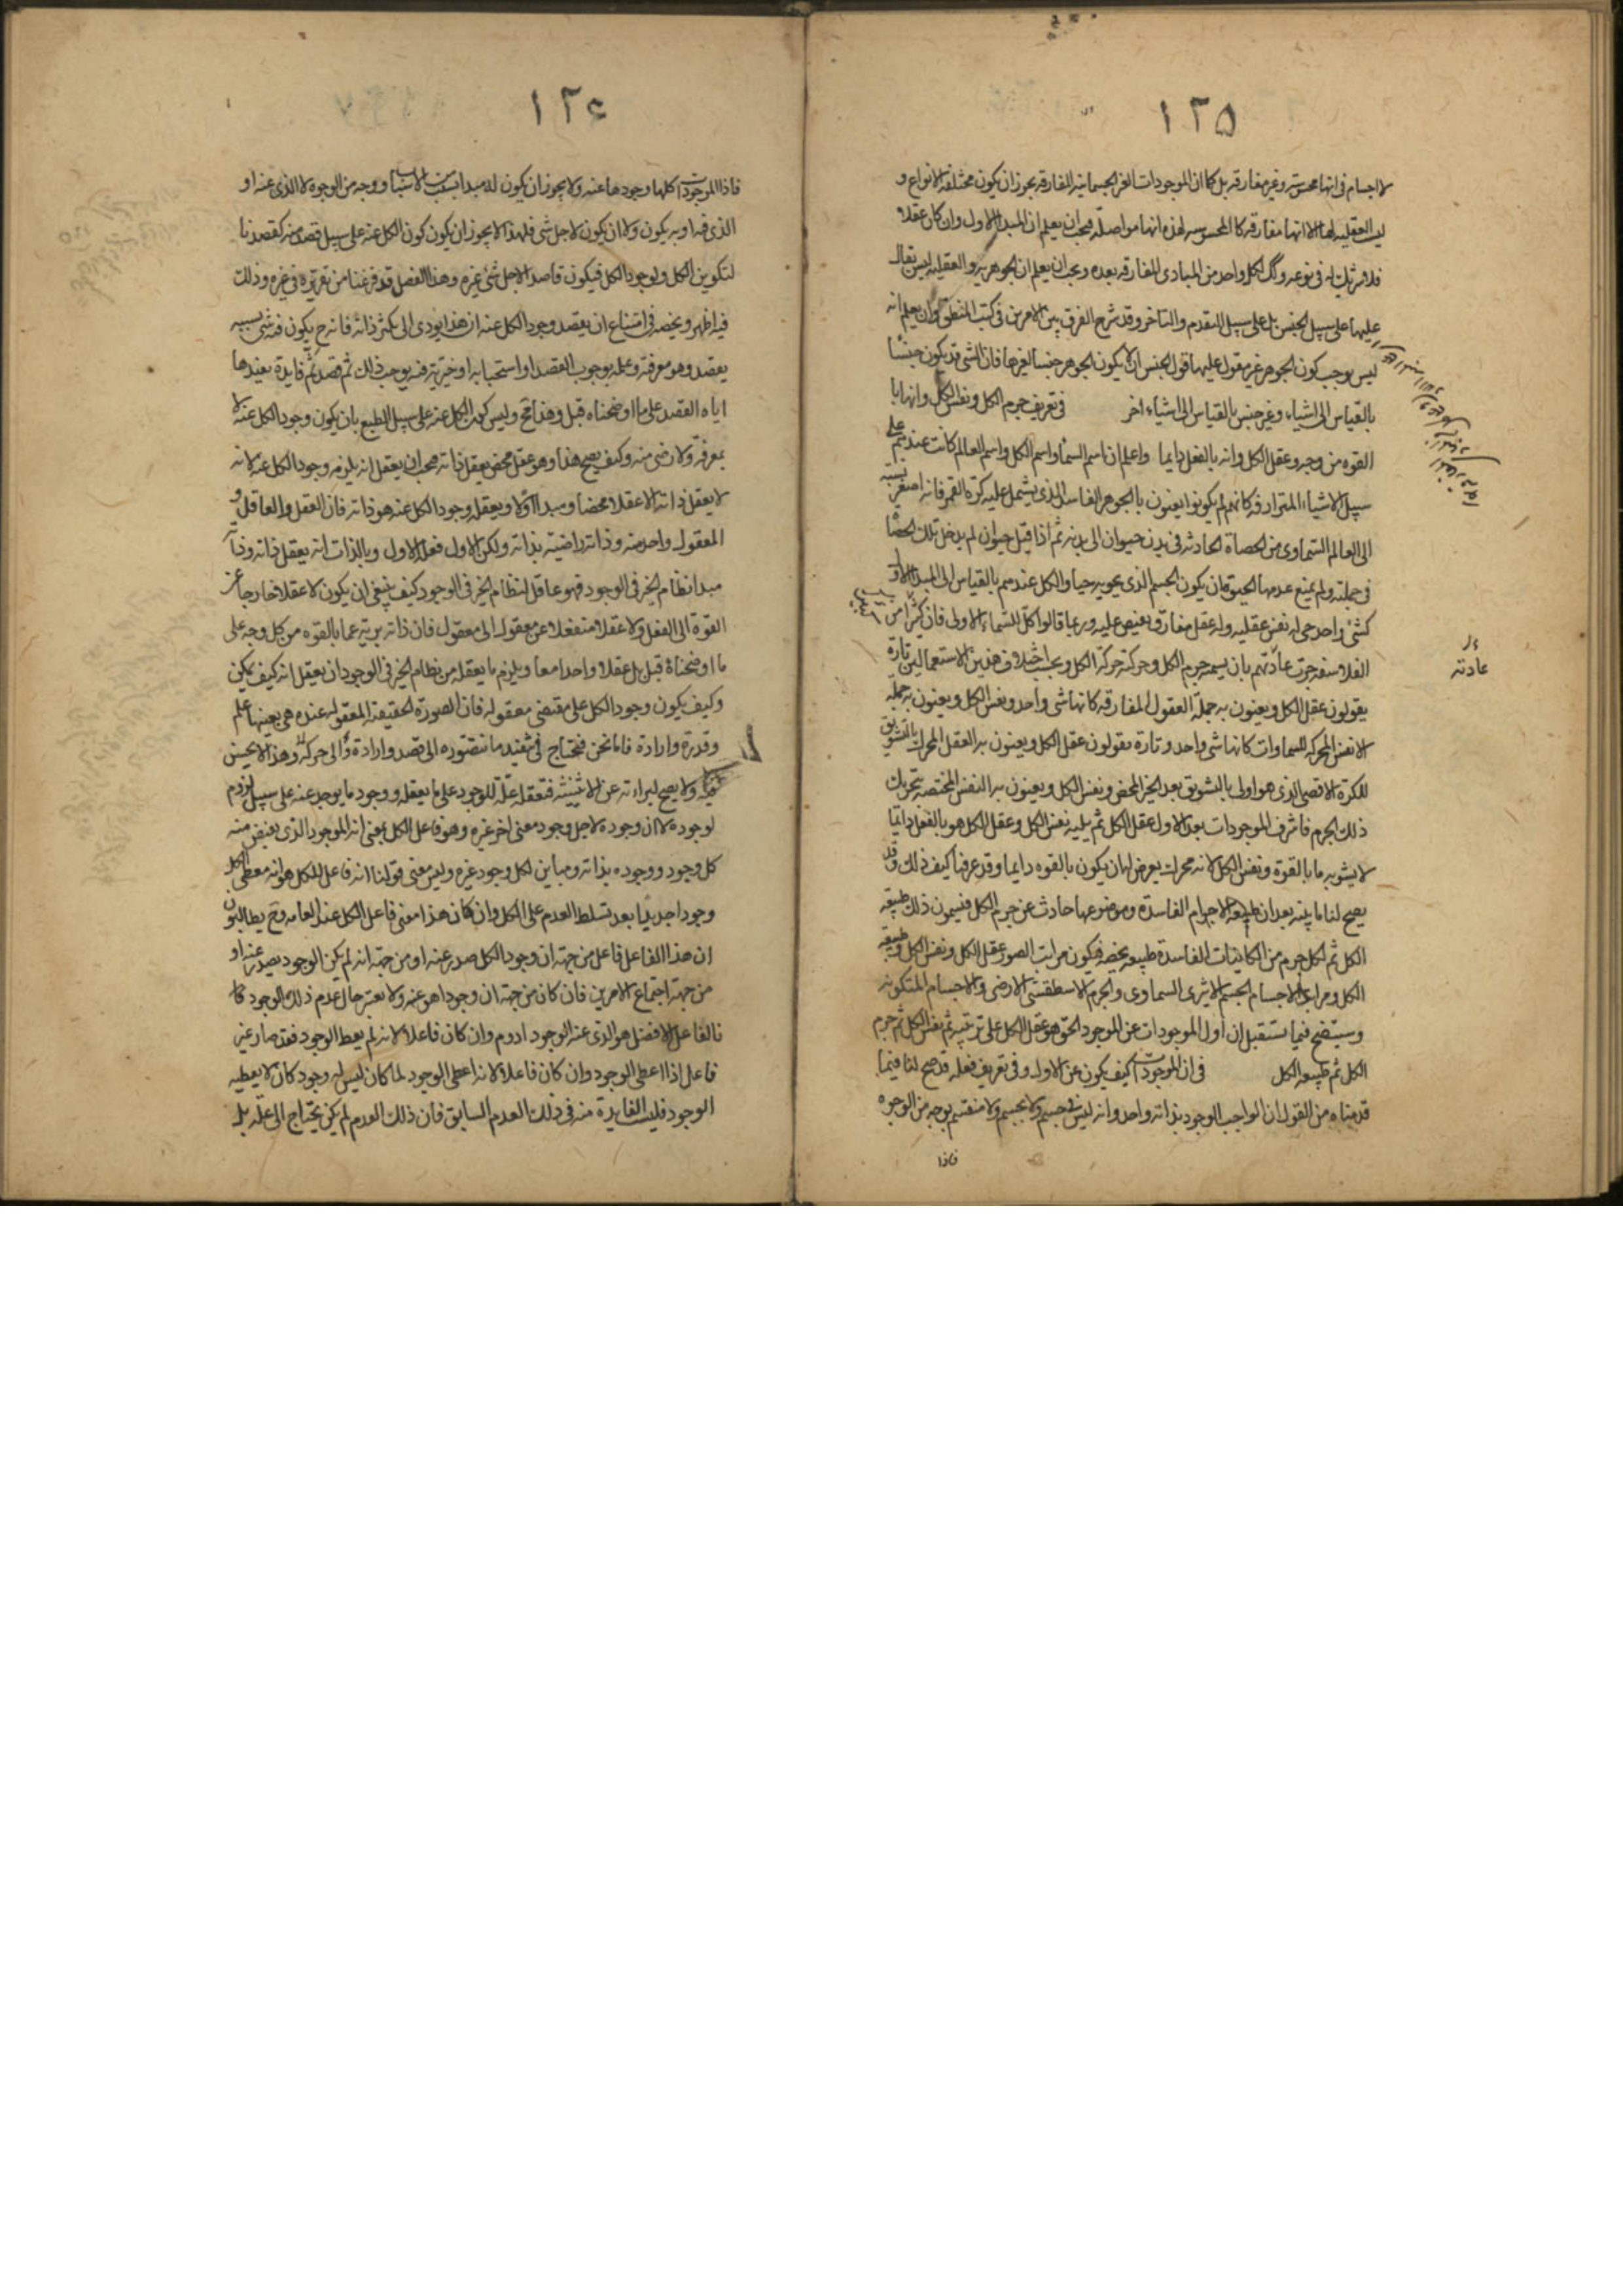 ١٢٥
لاجسام في انها محسوسة وغير مفارقه بل كما ان الموجودات الغير الجسمانية المفارقه يجوز ان يكون مختلفة الانواع و
ليست العقليه لها الا انها مفارقه كالمحسوسيه لهذه انها مواصلة فيجب ان يعلم ان المبدا الاول وان كان عقلا و
فلا شريك له في نوعه ولكل واحد من المبادى المفارقه بعده ويجب ان يعلم ان الجوهريه والعقليه ليس يقال
عليها على سبيل الجنس بل على سبيل التقدم والتاخر وقد شرح الفرق بين الامرين في كتب المنطق وان يعلم انه
ليس يوجب كون الجوهر غير مقول عليها قول الجنس ان لا يكون الجوهر جنسا لغيرها فان الشى قد يكون جنسا
بالقياس الى اشياء وغير جنس بالقياس الى اشياء اخر في تعريف جرم الكل ونفس الكل وانها با
القوه من وجه وعقل الكل وانه بالفعل دايما واعلم ان اسم السما واسم الكل واسم العالم كانت عندهم على
سبيل الاشياء المترادفه كانهم لم يكونوا يعنون بالجوهر الفاسد الذى يشتمل عليه كرة القمر فانه اصغر نسبة
الى العالم السماوى من الحصاة الحادثه في بدن حيوان الى بدنه ثم اذا قيل حيوان لم يدخل تلك الحصا
في جملته ولم يمنع عدمها الحيوة ان يكون الجسم الذى يحويه حيا والكل عندهم بالقياس الى المبدا الاول
كشئ واحد حى له نفس عقليه وله عقل مفارق يفيض عليه وربما قالوا كل للسماء الاولى فان كثيرا من
الفلاسفه جرت عادتهم بان يسمه جرم الكل وحركته حركة الكل وبحسب اختلاف هذين الاستعمالين تارة
يقولون عقل الكل ويعنون به جملة العقول المفارقه كانها شى واحد ونفس الكل ويعنون به جملة
الانفس المحركة للسماوات كانها شى واحد وتارة يقولون عقل الكل ويعنون به العقل المحرك بالتشويق
للكرة الاقصى الذى هو اولى بالتشويق بعد الخير المحض ونفس الكل ويعنون به النفس المختصه بتحريك
ذلك الجرم فاشرف الموجودات بعد الاول عقل الكل ثم يليه نفس الكل وعقل الكل هو بالفعل دايما
لا يشوبه ما بالقوة ونفس الكل لانه محرك يعرض لها ان يكون بالقوه دايما وقد عرفنا كيف ذلك وقد
يصح لنا ما بينه بعد ان طبيعة الاجرام الفاسدة وموضوعها حادث عن جرم الكل فيسمون ذلك طبيعه
الكل ثم لكل جرم من الكاينات الفاسدة طبيعه يخصه فيكون مراتب الصور عقل الكل ونفس الكل وطبيعة
الكل ومراتب الاجسام الجسم الاثيرى السماوى والجرم الاسطقسى الارضى والاجسام المتكونه
وسيتضح فيما يستقبل ان اول الموجودات عن الموجود الحق هو عقل الكل على ترتيبه ثم نفس الكل ثم جرم
الكل ثم طبيعه الكل في ان الموجودات كيف يكون عن الاول وفي تعريف فعله قد صح لنا فيما
قدمناه من القول ان الواجب الوجود بذاته واحد وانه ليس بجسم ولا في جسم ولا منقسم بوجه من الوجوه
فاذا
عادته
١٢٦
فاذا الموجودات كلها وجودها عنه ولا يجوز ان يكون له مبدا بسبب من الاسباب و وجه من الوجوه لا الذى عنه او
الذى فيه او به يكون ولا ان يكون لاجل شى فلهذا لا يجوز ان يكون كون الكل عنه على سبيل قصد منه كقصدنا
لتكوين الكل ولوجود الكل فيكون قاصدا لاجل شئ غيره وهذا الفصل قد فرغنا من تقريره في غيره وذلك
فيه اظهر ويخصه في امتناع ان يقصد وجود الكل عنه ان هذا يودى الى تكثر ذاته فانه ح يكون فيه شى بسببه
يقصد وهو معرفته وعلمه بوجوب القصد او استحبابه او خيرية فيه يوجب ذلك ثم قصد ثم فايدة يفيدها
اياه القصد على ما اوضحناه قبل وهذا مح وليس كون الكل عنه على سبيل الطبع بان يكون وجود الكل عنه لا
بمعرفة ولا رضى منه وكيف يصح هذا وهو عقل محض يعقل ذاته فيجب ان يعقل انه يلزمه وجود الكل عنه لانه
لا يعقل ذاته الا عقلا محضا ومبدا اولا ويعقل وجود الكل عنه هو ذاته فان العقل والعاقل و
المعقول واحد منه وذاته راضية بذاته ولكن الاول فعله الاول وبالذات انه يعقل ذاته وذاته
مبدا نظام الخير في الوجود فهو عاقل لنظام الخير في الوجود كيف ينبغى ان يكون لا عقلا خارجا عن
القوة الى الفعل ولا عقلا منتقلا عن معقول الى معقول فان ذاته برية عما بالقوه من كل وجه على
ما اوضحناه قبل بل عقلا واحدا معا ويلزم ما يعقله من نظام الخير في الوجود ان يعقل انه كيف يمكن
وكيف يكون وجود الكل على مقتضى معقوله فان الصورة الحقيقة المعقوله عنده هى بعينها علم
وقدرة وارادة فاما نحن فنحتاج في تنفيذ ما نتصوره الى قصد وارادة والى حركة وهذا لا يحسن
فيه ولا يصح لبراءته عن الاثنينية فتعقله علة للوجود على ما يعقله ووجود ما يوجد عنه على سبيل لزوم
لوجوده لا ان وجوده لاجل وجود معنى اخر غيره وهو فاعل الكل بمعنى انه الموجود الذى يفيض منه
كل وجود ووجوده بذاته ومباين لكل وجود غيره وليس معنى قولنا انه فاعل للكل هو انه معطى الكل
وجودا جديدا بعد تسلط العدم على الكل وان كان هذا معنى فاعل الكل عند العامه وح يطالبون
ان هذا الفاعل فاعل من جهة ان وجود الكل صدر عنه او من جهة انه لم يكن الوجود يصدر عنه او
من جهة اجتماع الامرين فان كان من جهة ان وجودا هو عنه ولا يعتبر حال عدم ذلك الوجود كا
فالفاعل الافضل هو الذى عنه الوجود ادوم وان كان فاعلا لانه لم يعط الوجود فقد صار غير
فاعل اذا اعطى الوجود وان كان فاعلا لانه اعطى الوجود لما كان ليس له وجود كان لا يعطيه
الوجود فليست الفايدة منه في ذلك العدم السابق فان ذلك العدم لم يكن يحتاج الى علة بل